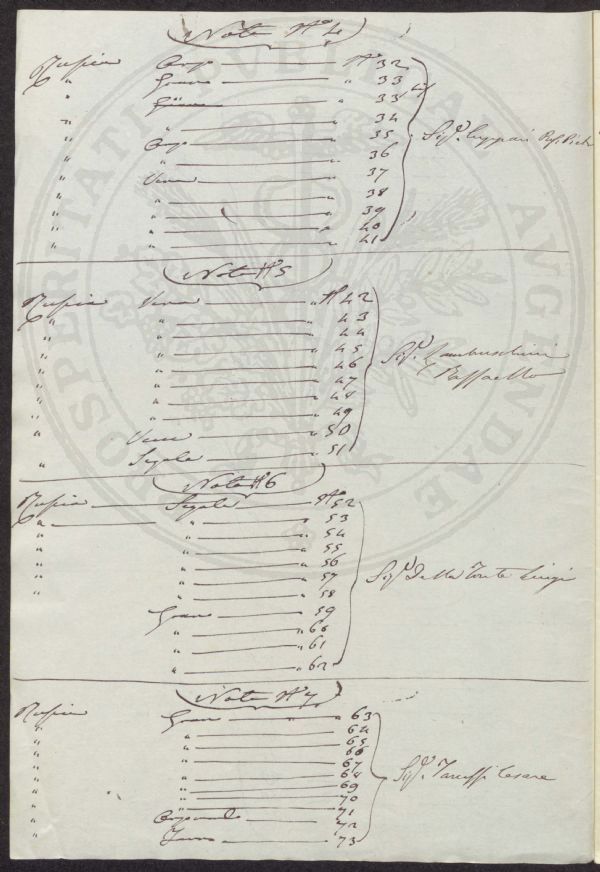 Note N° 4
Russia Orzo N° 32
" Grano " 33
" Grano " 33 bis
" " " 34
" Orzo " 35
" " " 36
" Vena " 37
" " " 38
" " " 39
" " " 40
" " " 41
Sig.r Cuppari Pietro
Note N° 5
Russia Vena " N° 42
" " " 43
" " " 44
" " " 45
" " " 46
" " " 47
" " " 48
" " " 49
" Vena " 50
" Segale " 51
Sig.r Lambruschini
Raffaello
Note N° 6
Russia Segale N° 52
" " " 53
" " " 54
" " " 55
" " " 56
" " " 57
" " " 58
Grano " 59
" " 60
" " 61
" " 62
Sig.r Della Torre Luigi
Note N° 7
Russia Grano " 63
" " 64
" " 65
" " 66
" " 67
" " 68
" " 69
" " 70
" " 71
" 72
" 73
Sig.r Taruffi Cesare
PROSPERITATI PUBLICAE AUGENDAE